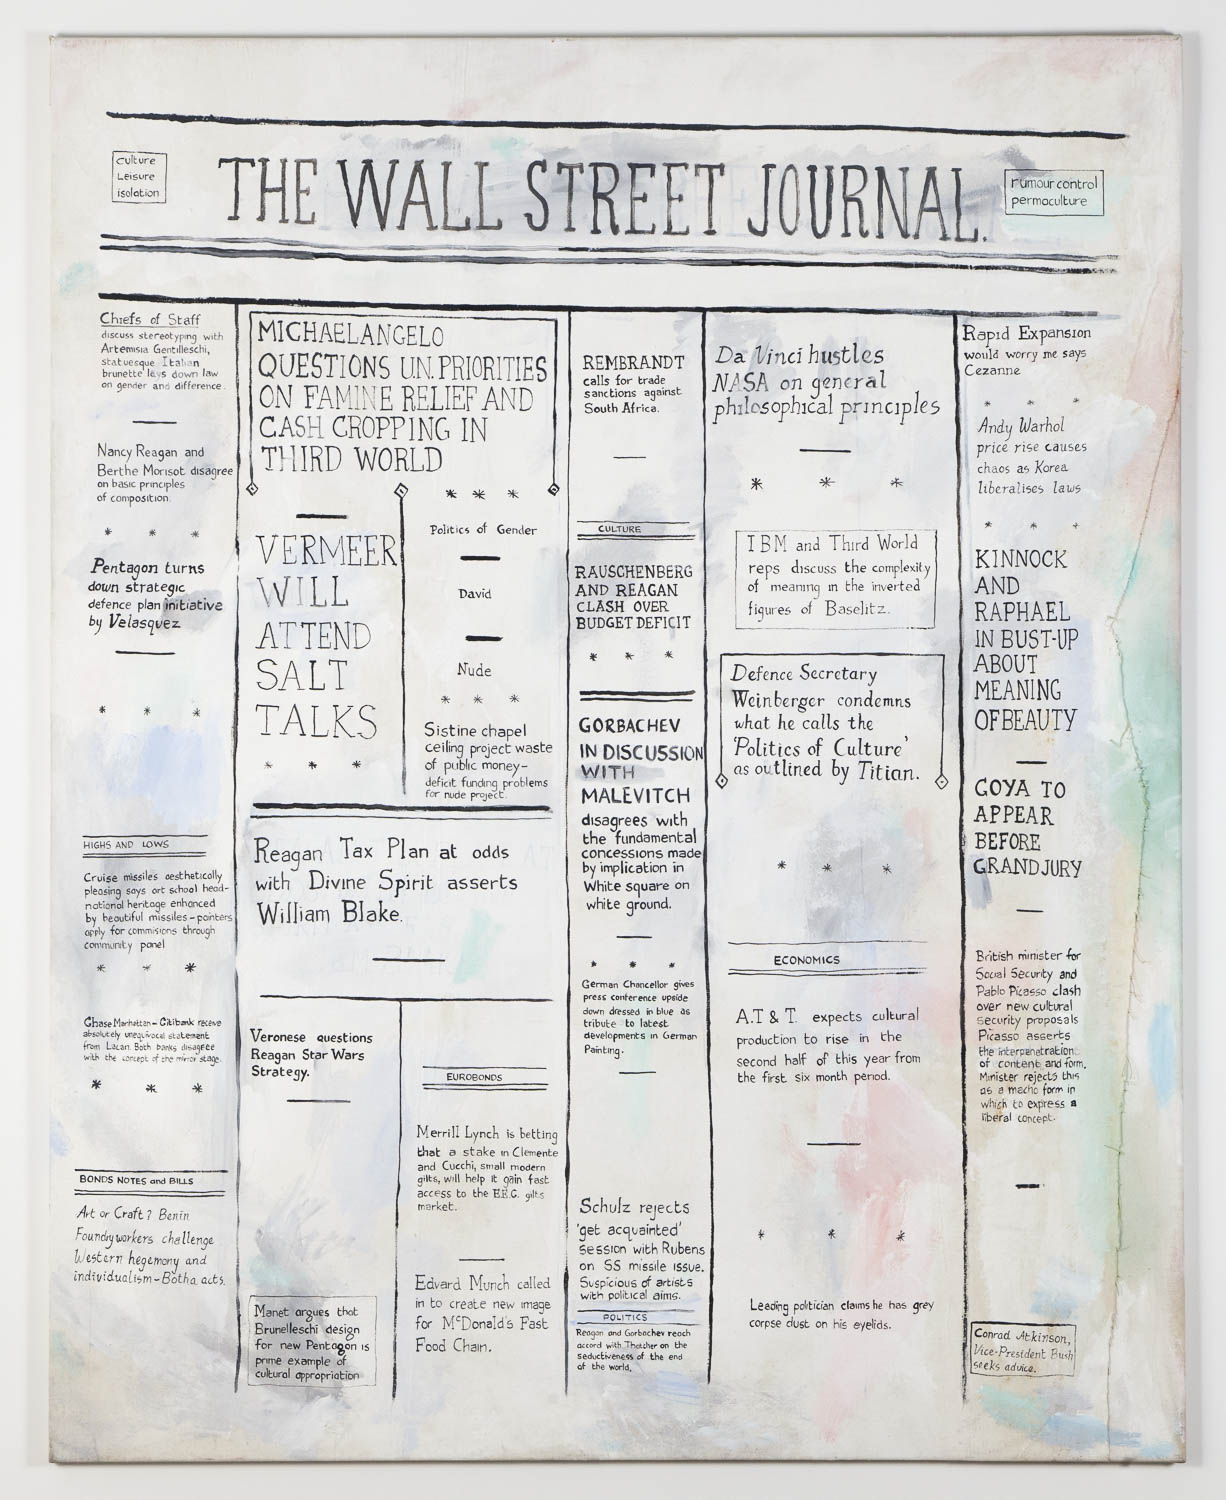 culture
Leisure
isolation
THE WALL STREET JOURNAL.
rumour control
permaculture
Chiefs of Staff
discuss stereotyping with
Artemisia Gentilleschi,
statuesque Italian
brunette lays down law
on gender and difference.
Nancy Reagan and
Berthe Morisot disagree
on basic principles
of composition.
* * *
Pentagon turns
down strategic
defence plan initiative
by Velasquez
* * *
HIGHS AND LOWS
Cruise missiles aesthetically
pleasing says art school head-
national heritage enhanced
by beautiful missiles-painters
apply for commisions through
community panel
* * *
Chase Manhattan-Citibank receive
absolutely unequivocal statement
from Lacan. Both banks disagree
with the concept of the mirror stage.
* * *
BONDS NOTES and BILLS
Art or Craft? Benin
Foundry workers challenge
Western hegemony and
individualism-Botha acts.
MICHAELANGELO
QUESTIONS U.N. PRIORITIES
ON FAMINE RELIEF AND
CASH CROPPING IN
THIRD WORLD
VERMEER
WILL
ATTEND
SALT
TALKS
* * *
* * *
Politics of Gender
David
Nude
* * *
Sistine chapel
ceiling project waste
of public money-
deficit funding problems
for nude project.
Reagan Tax Plan at odds
with Divine Spirit asserts
William Blake.
Veronese questions
Reagan Star Wars
Strategy.
Manet argues that
Brunelleschi design
for new Pentagon is
prime example of
cultural appropriation
EUROBONDS
Merrill Lynch is betting
that a stake in Clemente
and Cucchi, small modern
gilts, will help it gain fast
access to the E.E.C. gilts
market.
Edvard Munch called
in to create new image
for McDonald's Fast
Food Chain.
REMBRANDT
calls for trade
sanctions against
South Africa.
CULTURE
RAUSCHENBERG
AND REAGAN
CLASH OVER
BUDGET DEFICIT
* * *
GORBACHEV
IN DISCUSSION
WITH
MALEVITCH
disagrees with
the fundamental
concessions made
by implication in
White square on
white ground.
* * *
German Chancellor gives
press conference upside
down dressed in blue as
tribute to latest
developments in German
Painting.
Schulz rejects
'get acquainted'
session with Rubens
on SS missile issue.
Suspicious of artists
with political aims.
POLITICS
Reagan and Gorbachev reach
accord with Thatcher on the
seductiveness of the end
of the world.
Da Vinci hustles
NASA on general
philosophical principles
* * *
IBM and Third World
reps discuss the complexity
of meaning in the inverted
figures of Baselitz.
Defence Secretary
Weinberger condemns
what he calls the
'Politics of Culture'
as outlined by Titian.
* * *
ECONOMICS
A.T & T. expects cultural
production to rise in the
second half of this year from
the first six month period.
* * *
Leading politician claims he has grey
corpse dust on his eyelids.
Rapid Expansion
would worry me says
Cezanne
* * *
Andy Warhol
price rise causes
chaos as Korea
liberalises laws
* * *
KINNOCK
AND
RAPHAEL
IN BUST-UP
ABOUT
MEANING
OF BEAUTY
GOYA TO
APPEAR
BEFORE
GRAND JURY
British minister for
Social Security and
Pablo Picasso clash
over new cultural
security proposals
Picasso asserts
the interpenetration
of content and form.
Minister rejects this
as a macho form in
which to express a
liberal concept.
Conrad Atkinson,
Vice-President Bush
seeks advice.